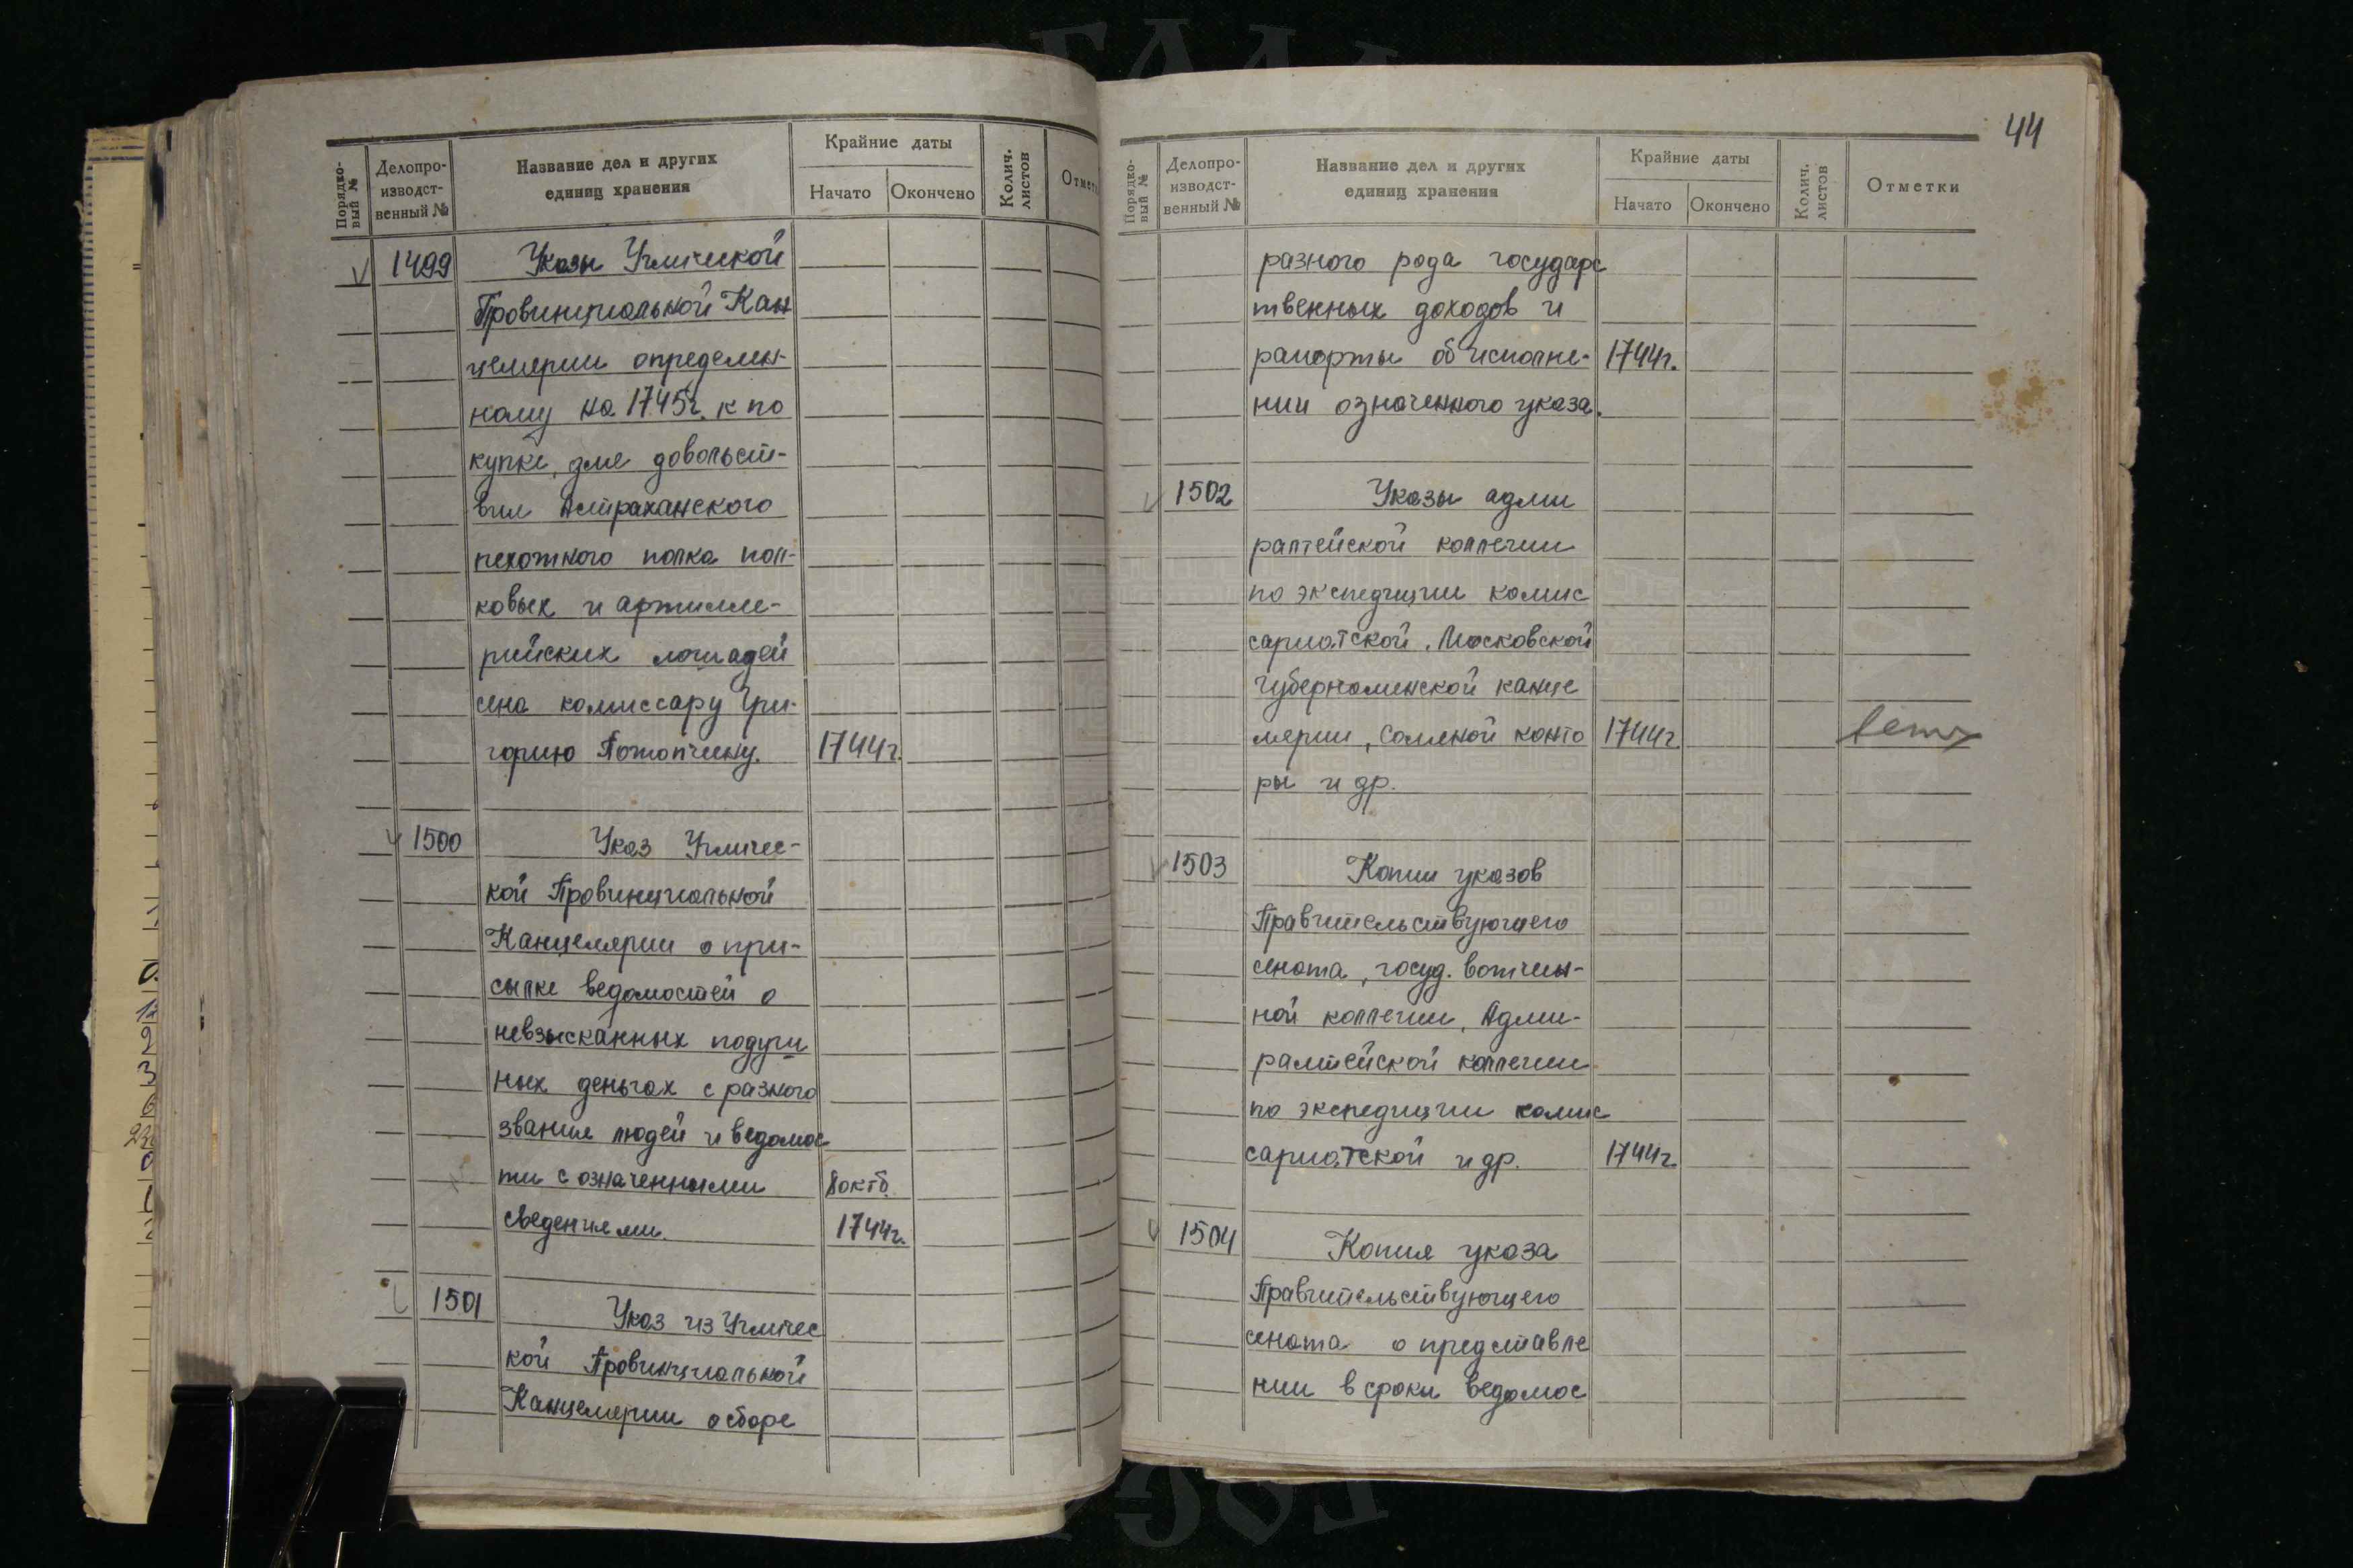 Порядко-
вый №
Делопро-
изводст-
венный №
Название дел и других
единиц хранения
Крайние даты
Начато
Окончено
Колич.
листов
1499 Указы Угличской
Провинциальной Кан
целярии определен-
ному на 1745г. к по
купке, для довольст-
вия Астраханского
пехотного полка пол-
ковых и артилле-
рийских лошадей
сена комиссару Гри-
горию Потопчину. 1744г.
1500 Указ Угличес-
кой Провинциальной
Канцелярии о при-
сылке ведомостей о
невзысканных подуш
ных деньгах с разного
звания людей и ведомос
ти с означенными 8 октб.
сведениями. 1744г.
1501 Указ из Угличес
кой Провинциальной
Канцелярии о сборе
44
Порядко-
вый №
Делопро-
изводст-
венный №
Название дел и других
единиц хранения
Крайние даты
Начато
Окончено
Колич.
листов
Отметки
разного рода государс
твенных доходов и
рапорты об исполне- 1744г.
нии означенного указа.
1502 Указы адми
ралтейской коллегии
по экспедиции комис
сариатской, Московской
губернаминской канце
лярии, Соляной конто 1744г.
ры и др.
1503 Копии указов
Правительствующего
сената, госуд. вотчин-
ной коллегии, Адми-
ралтейской коллегии
по экспедиции комис
сариатской и др. 1744г.
1504 Копия указа
Правительствующего
сената о представле
нии в сроки ведомос